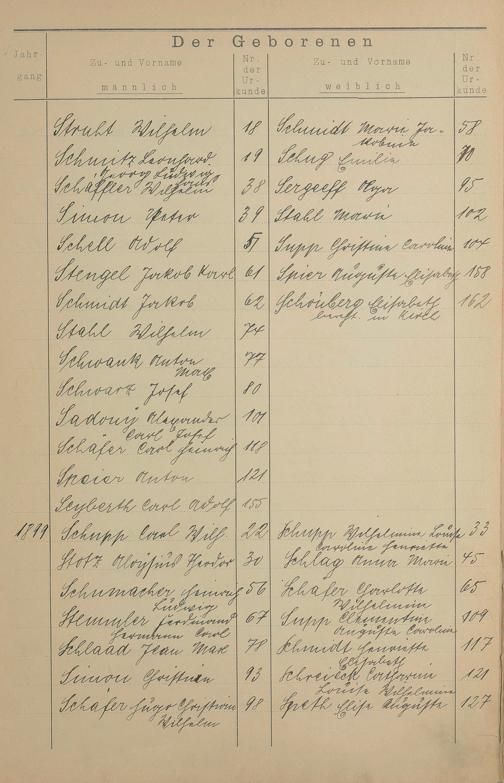 Der Geborenen
Jahrgang
Zu- und Vorname
männlich
Nr. der Urkunde
Zu- und Vorname
weiblich
Nr. der Urkunde
Struht Wilhelm 18 Schmidt Marie Ja- 58
kobine
Schmitz Leonhard 19 Schug Emilie 70
Georg Ludwig
Schäffler Wilhelm 38 Sergeeff Olga 95
Simon Peter 39 Stahl Marie 102
Schell Adolf 51 Supp Christine Caroline 104
Stengel Jakob Karl 61 Spier Auguste Elisabeth 158
Schmidt Jakob 62 Schönberg Elisabeth 162
Stahl Wilhelm 74
Schwank Anton 77
Max
Schwarz Josef 80
Sadony Alexander 101
Carl Josef
Schäfer Carl Heinrich 118
Speier Anton 121
Seyberth Carl Adolf 155
1899 Schupp Carl Wilh. 22 Schupp Wilhelmine Louise 33
Caroline Henriette
Stotz Aloysius Theodor 30 Schlag Anna Marie 45
Schumacher Heinrich 56 Schäfer Charlotte 65
Ludwig Wilhelmine
Stemmler Ferdinand 67 Supp Clementine 109
Hermann Carl Auguste Caroline
Schlaad Jean Max 78 Schmidt Henriette 117
Elisabeth
Simon Christian 93 Schreick Catharine 121
Louise Wilhelmine
Schäfer Hugo Christian 98 Spreth Elise Auguste 127
Wilhelm